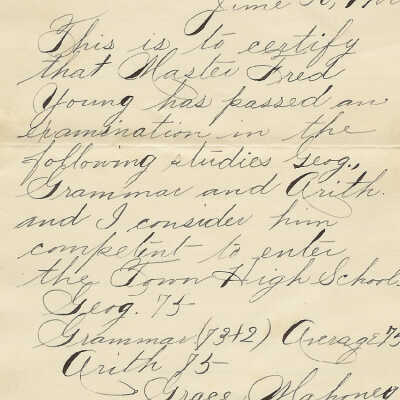 June 30,
This is to certify
that Master Fred
Young has passed an
examination in the
following studies Geog.,
Grammar and Arith.
and I consider him
competent to enter
the Town High School.
Geog. 75
Grammar (73+2) Average 75
Arith 75
Grace Mahoney